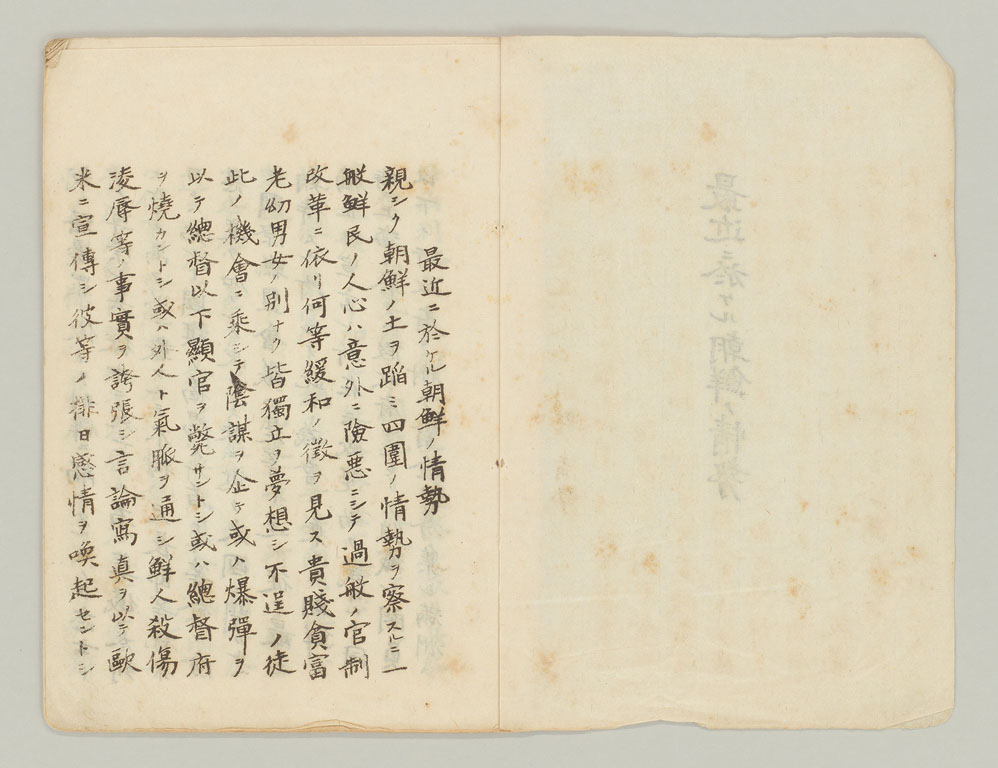 最近ニ於ケル朝鮮ノ情勢
親シク朝鮮ノ土ヲ蹈ミ四圍ノ情勢ヲ察スルニ一
般鮮民ノ人心ハ意外ニ險惡ニシテ過般ノ官制
改革ニ依リ何等緩和ノ徴ヲ見ス貴賤貧富
老幼男女ノ別ナク皆獨立ヲ夢想シ不逞ノ徒
此ノ機會ニ乘シテ陰謀ヲ企テ或ハ爆彈ヲ
以テ總督以下顯官ヲ斃サントシ或ハ總督府
ヲ燒カントシ或ハ外人ト氣脈ヲ通シ鮮人殺傷
凌辱等ノ事實ヲ誇張シ言論寫真ヲ以テ歐
米ニ宣傳シ彼等ノ排日感情ヲ喚起セントシ